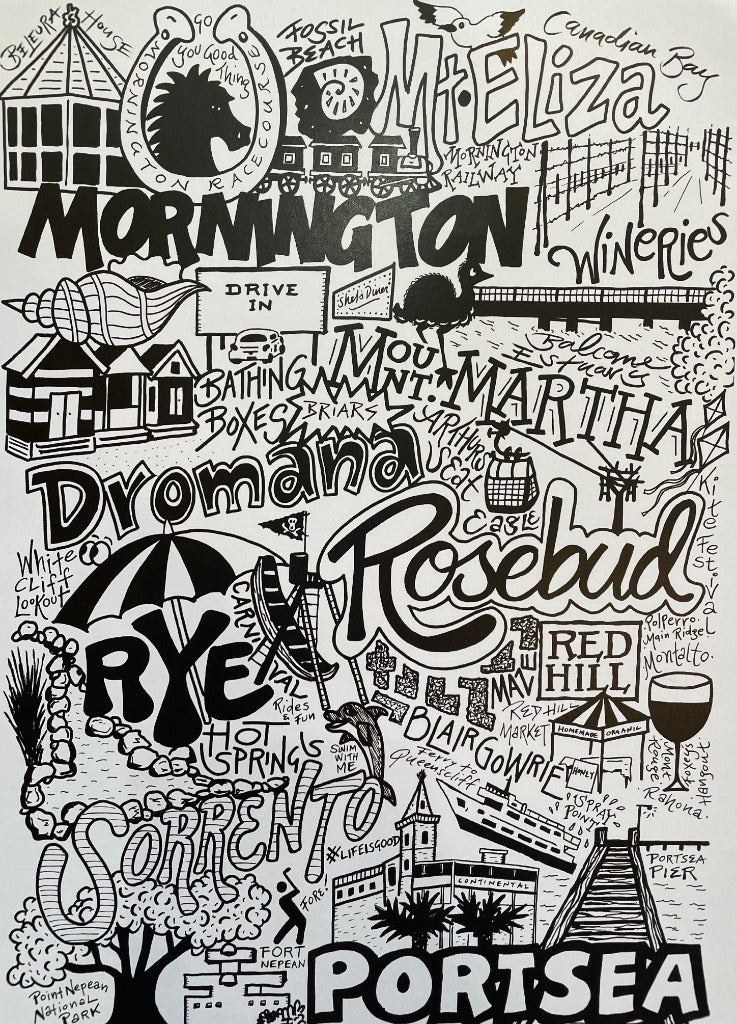 BELEURA HOUSE
GO
You Good Thing
MORNINGTON RACECOURSE
FOSSIL
BEACH
Mt. Eliza
Canadian Bay
MORNINGTON
RAILWAY
MORNINGTON
WINERIES
DRIVE
IN
Shel's Diner
Balcome
Estuary
BATHING
BOXES
MOUNT. MARTHA
BRIARS
ARTHURS
SEAT
EAGLE
Dromana
Rosebud
Kite Festival
White
Cliff
Lookout
RYE
CARNIVAL
Rides
& Fun
MAZE
RED
HILL
Polperro.
Main Ridge
Montalto.
RED HILL
MARKET
HOMEMADE ORGANIC
HONEY
HOT
SPRINGS
SWIM
WITH
ME
BLAIRGOWRIE
Ferry to
Queenscliff
Mont
Rouge
Foxeys
Hangout
Rahona.
SPRAY
POINT
SORRENTO
#LIFEISGOOD
CONTINENTAL
FORE!
PORTSEA
PIER
FORT
NEPEAN
Point Nepean
National
Park
PORTSEA